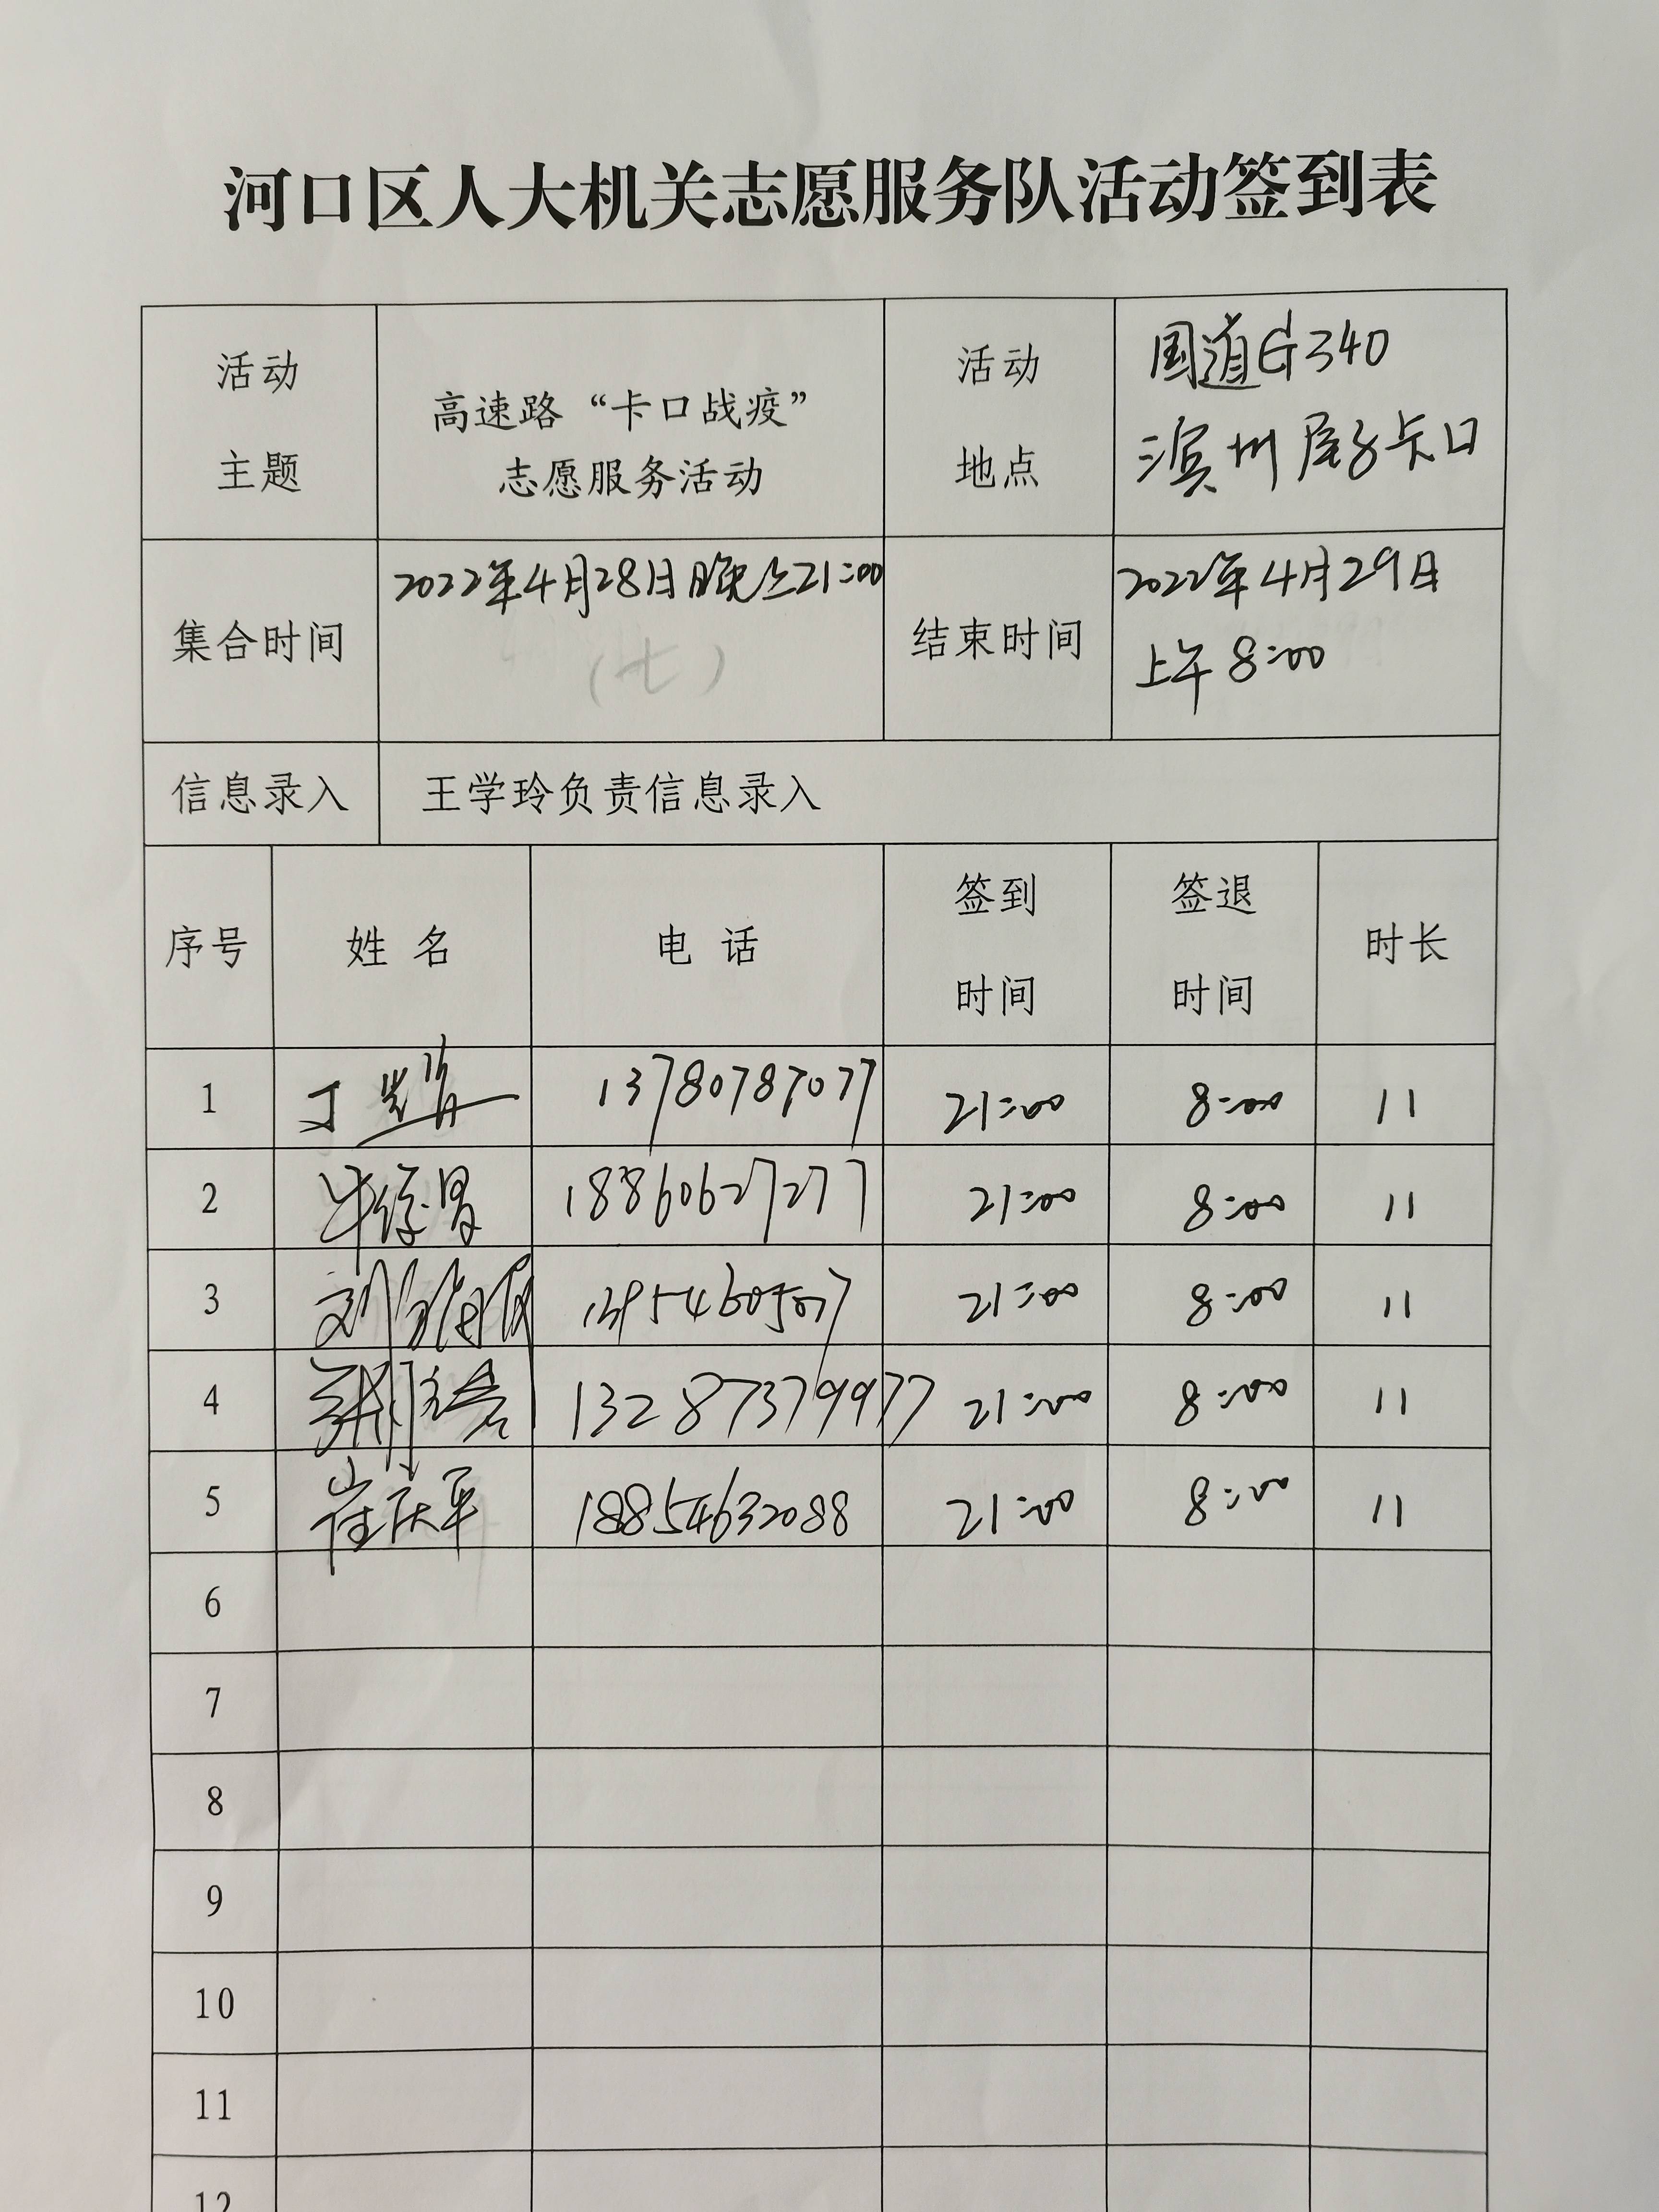 河口区人大机关志愿服务队活动签到表
活动
主题
高速路“卡口战疫”
志愿服务活动
活动
地点
国道G340
滨州 卡口
集合时间
2022年4月28日晚上21:00
（七）
结束时间
2022年4月29日
上午8:00
信息录入
王学玲负责信息录入
序号
姓 名
电 话
签到
时间
签退
时间
时长
1
丁
13780787077
21:00
8:00
11
2
18860627277
21:00
8:00
11
3
刘
21:00
8:00
11
4
13287379977
21:00
8:00
11
5
崔庆军
18854632088
21:00
8:00
11
6
7
8
9
10
11
12